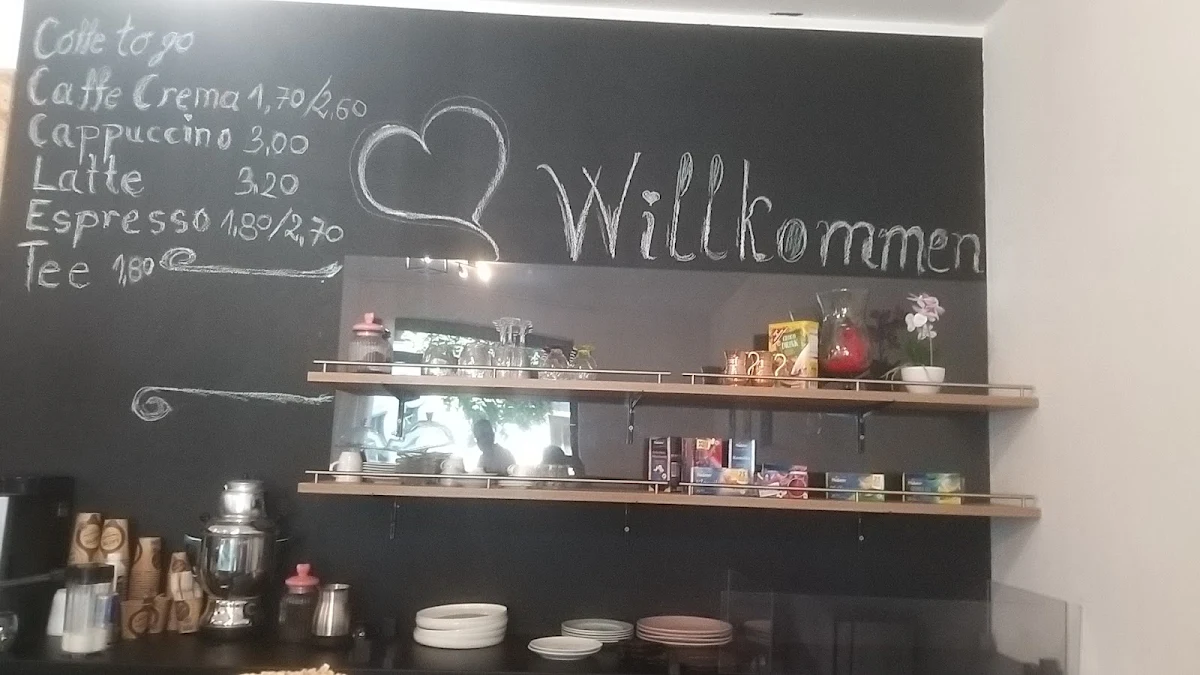 Coffe to go
Caffe Crema 1,70/2,60
Cappuccino 3,00
Latte 3,20
Espresso 1,80/2,70
Tee 1,80
Willkommen